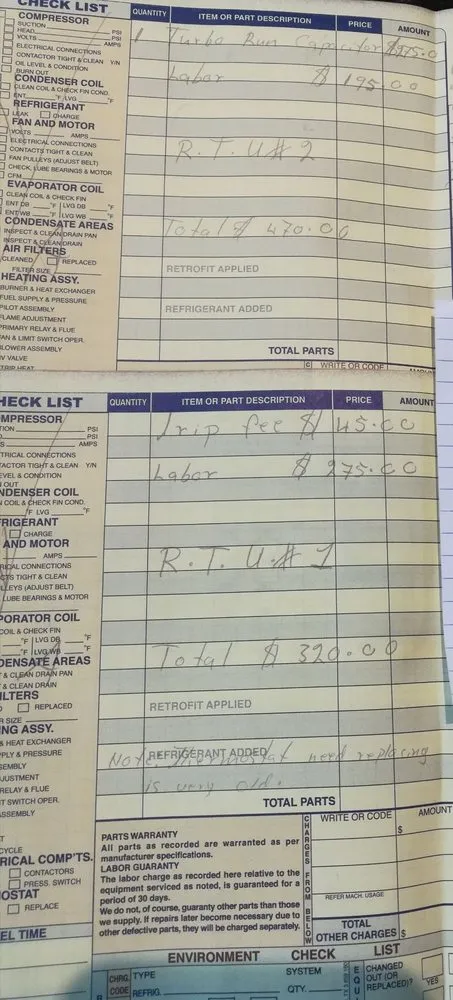 CHECK LIST
COMPRESSOR
SUCTION: PSI
HEAD PSI
VOLTS AMPS
ELECTRICAL CONNECTIONS
CONTACTOR TIGHT & CLEAN Y/N
OIL LEVEL & CONDITION
BURN OUT
CONDENSER COIL
CLEAN COIL & CHECK FIN COND.
ENT °F LVG °F
REFRIGERANT
LEAK CHARGE
FAN AND MOTOR
VOLTS AMPS
ELECTRICAL CONNECTIONS
CONTACTS TIGHT & CLEAN
FAN PULLEYS (ADJUST BELT)
CHECK, LUBE BEARINGS & MOTOR
CFM
EVAPORATOR COIL
CLEAN COIL & CHECK FIN
ENT DB °F LVG DB °F
ENT WB °F LVG WB °F
CONDENSATE AREAS
INSPECT & CLEAN DRAIN PAN
INSPECT & CLEAN DRAIN
AIR FILTERS
CLEANED REPLACED
FILTER SIZE
HEATING ASSY.
BURNER & HEAT EXCHANGER
FUEL SUPPLY & PRESSURE
PILOT ASSEMBLY
FLAME ADJUSTMENT
PRIMARY RELAY & FLUE
FAN & LIMIT SWITCH OPER.
BLOWER ASSEMBLY
VALVE
STRIP HEAT
QUANTITY ITEM OR PART DESCRIPTION PRICE AMOUNT
1 Turbo Run Capacitor $275.0
Labor $ 195.00
R.T.U# 2
Total $ 470.00
RETROFIT APPLIED
REFRIGERANT ADDED
TOTAL PARTS
C WRITE OR CODE AMOUN
HECK LIST
MPRESSOR
TION PSI
PSI
S AMPS
TRICAL CONNECTIONS
TACTOR TIGHT & CLEAN Y/N
EVEL & CONDITION
OUT
NDENSER COIL
N COIL & CHECK FIN COND.
°F LVG °F
FRIGERANT
CHARGE
AND MOTOR
AMPS
RICAL CONNECTIONS
CTS TIGHT & CLEAN
LLEYS (ADJUST BELT)
LUBE BEARINGS & MOTOR
PORATOR COIL
COIL & CHECK FIN
°F LVG DB °F
°F LVG WB °F
DENSATE AREAS
& CLEAN DRAIN PAN
& CLEAN DRAIN
ILTERS
D REPLACED
R SIZE
NG ASSY.
& HEAT EXCHANGER
PLY & PRESSURE
SEMBLY
JUSTMENT
RELAY & FLUE
T SWITCH OPER.
ASSEMBLY
T
CYCLE
RICAL COMP'TS.
CONTACTORS
PRESS. SWITCH
OSTAT
REPLACE
EL TIME
QUANTITY ITEM OR PART DESCRIPTION PRICE AMOUNT
Trip fee $ 45.00
Labor $ 275.00
R.T.U.# 1
Total $ 320.00
RETROFIT APPLIED
REFRIGERANT ADDED
Not thermostat need replacing
is very old.
TOTAL PARTS
PARTS WARRANTY
All parts as recorded are warranted as per
manufacturer specifications.
LABOR GUARANTY
The labor charge as recorded here relative to the
equipment serviced as noted, is guaranteed for a
period of 30 days.
We do not, of course, guaranty other parts than those
we supply. If repairs later become necessary due to
other defective parts, they will be charged separately.
CHARGES FROM BELOW
WRITE OR CODE AMOUNT
$
REFER MACH. USAGE
TOTAL
OTHER CHARGES $
ENVIRONMENT CHECK LIST
CHRG. CODE TYPE SYSTEM
REFRIG. QTY.
EQU
CHANGED
OUT (OR
REPLACED)?
YES